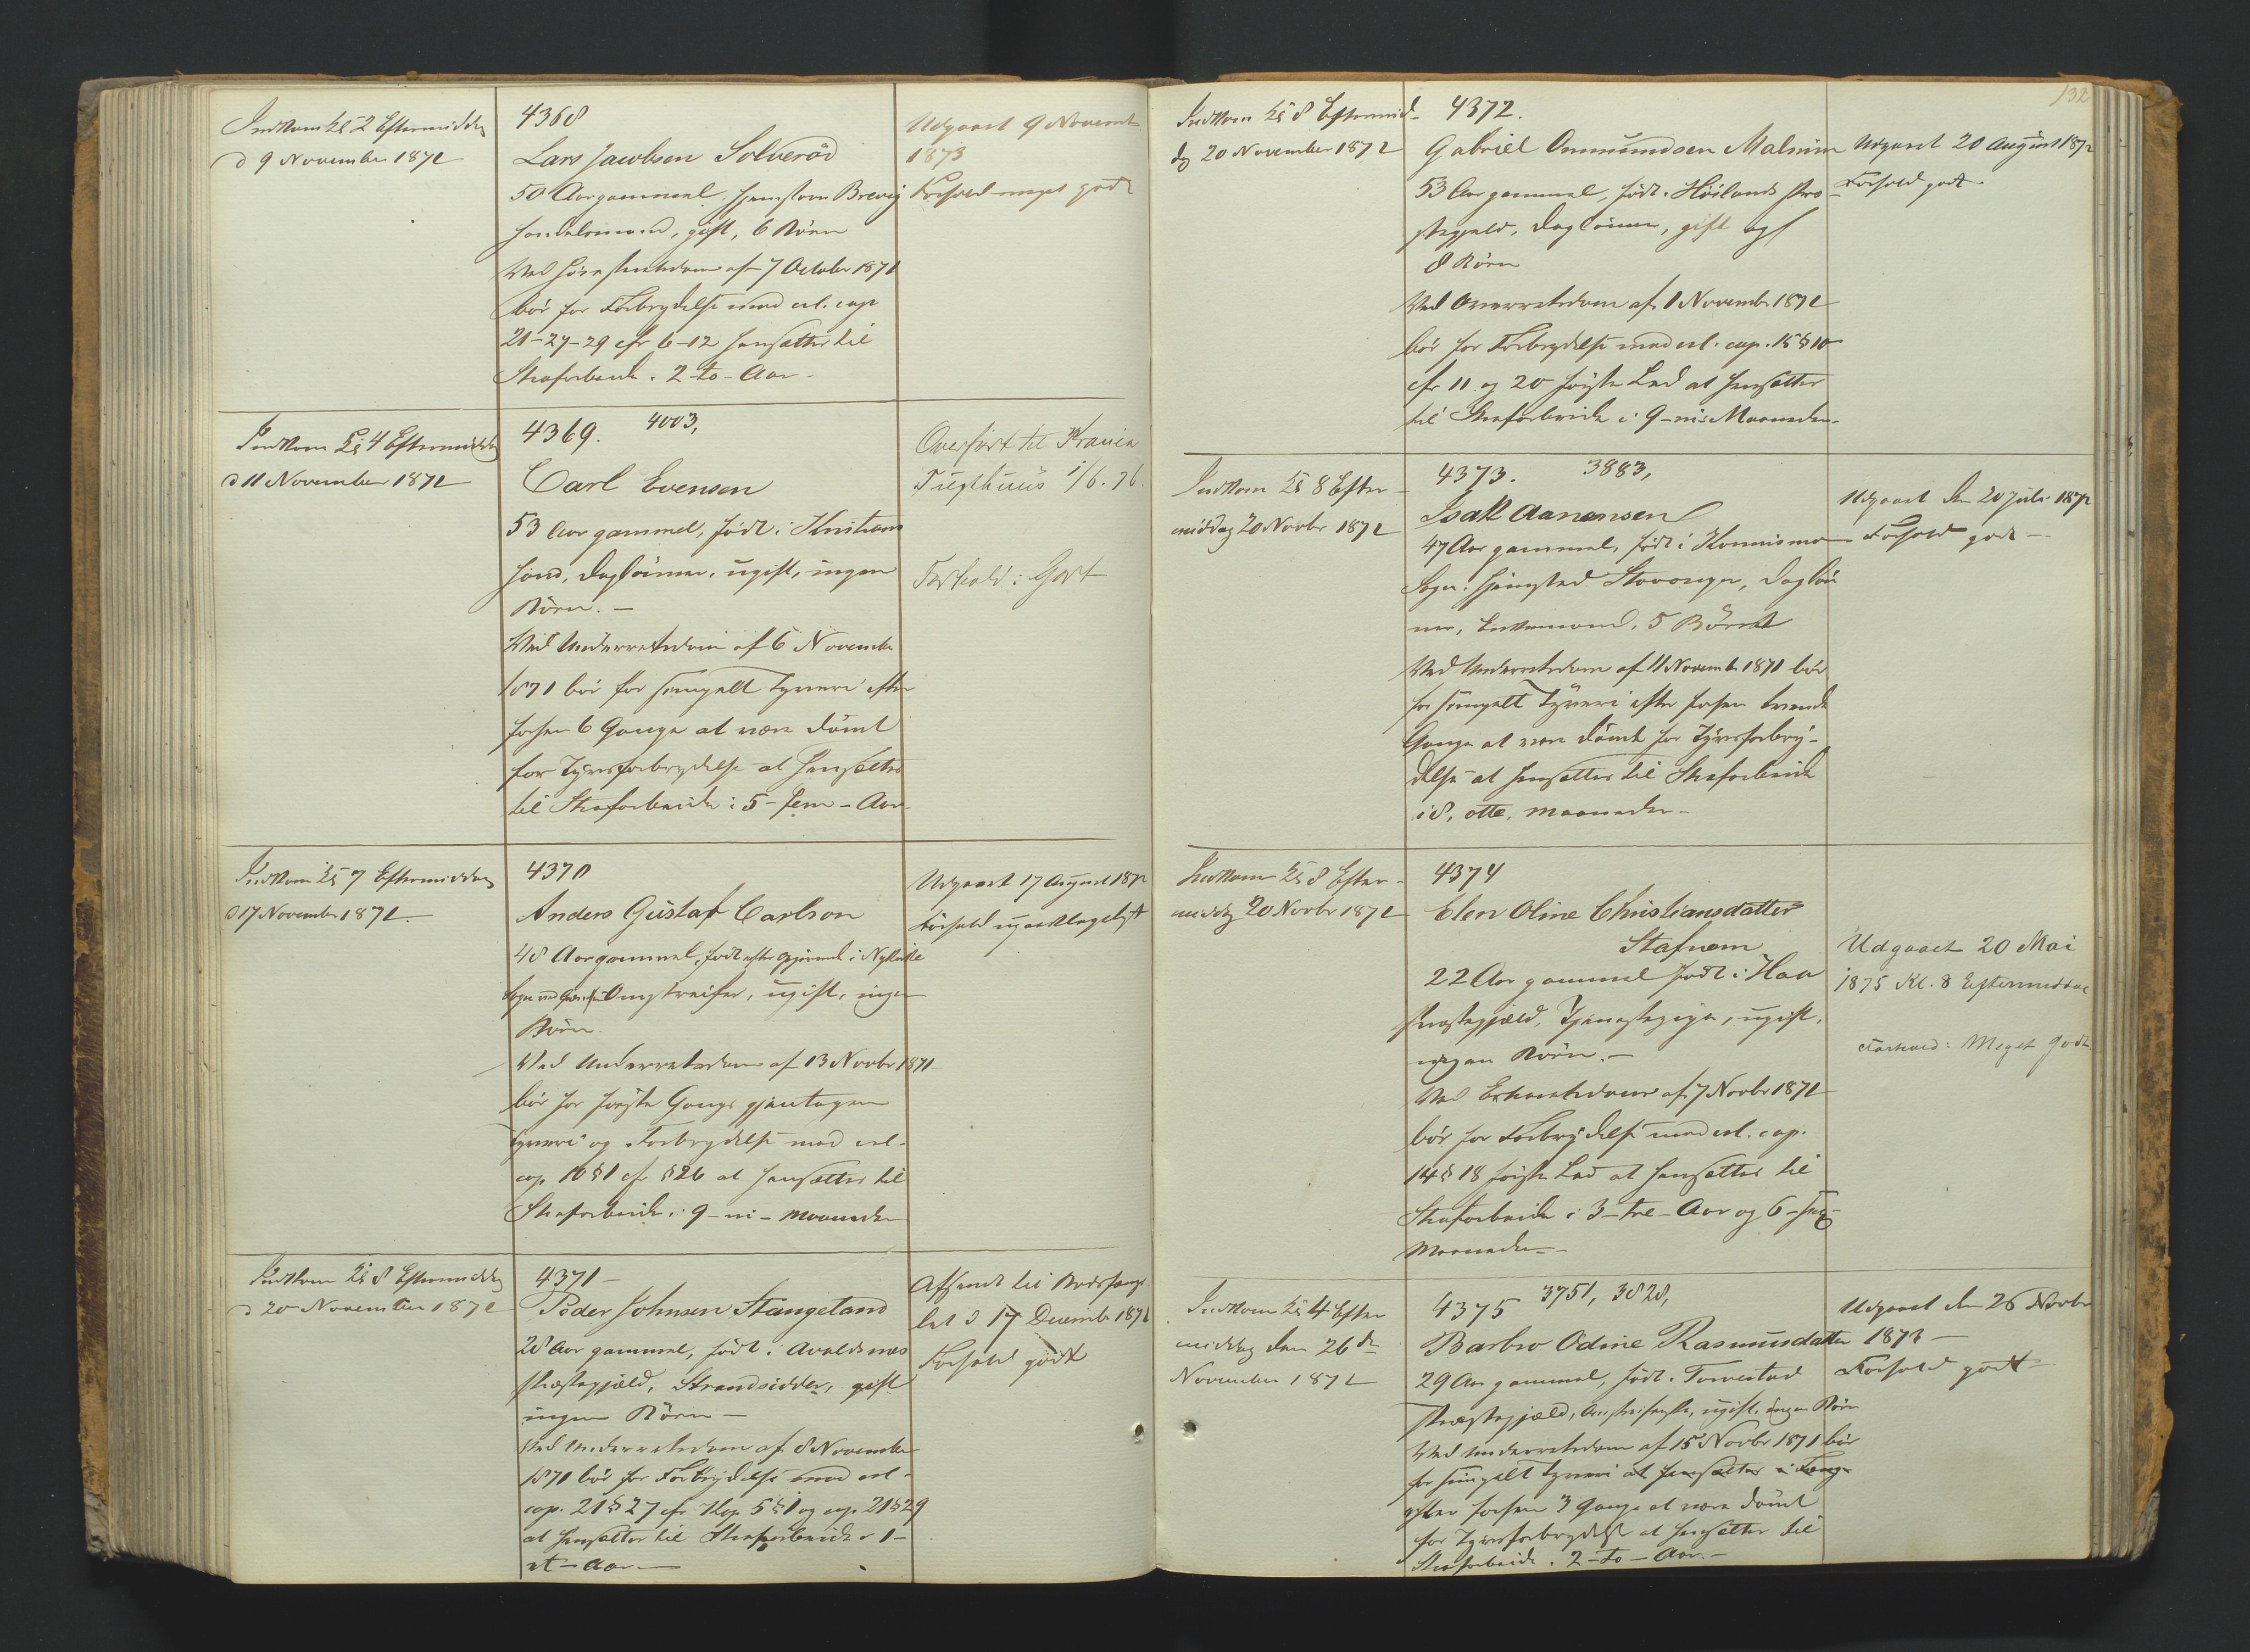 Indkom Kl 2 Eftermiddag
d 9 November 1871
4368
Lars Jacobsen Solveröd
50 Aar gammel, Hjemstavn Brevig
Handelsmand, gift, 6 Börn
Ved Höiesteretsdom af 7 October 1871
bör for Forbrydelse mod crl. cap
21-27-29 cfr 6-12 hensættes til
Strafarbeide i 2-to-Aar.
Udgaaet 9 Novemb
1873
Forhold meget godt
Indkom Kl 4 Eftermiddag
d 11 November 1871
4369. 4003,
Carl Evensen
53 Aar gammel, födt i Kristian
sand, Daglönner, ugift, ingen
Börn. –
Ved Underretsdom af 6 November
1871 bör for simpelt Tyveri efter
forhen 6 Gange at være dömt
for Tyvsforbrydelse at hensættes
til Strafarbeide i 5-fem-Aar
Overfört til
Tugthuus 1/6. 76.
Forhold: Godt
Indkom Kl 7 Eftermiddag
d 17 November 1871.
4370
Anders Gustaf Carlson
48 Aar gammel, födt efter Opgivend i Nykirke
Sogn ved Omstreifer, ugift, ingen
Börn.
Ved Underretsdom af 13 Novbr 1871
bör for förste Gangs gjentagen
Tyveri og Forbrydelse mod crl.
cap 10 § 1 cfr § 26 at hensættes til
Strafarbeide i 9-ni-Maaneder
Udgaaet 17 August 1872
Forhold upaaklageligt
Indkom Kl 8 Eftermiddag
d 20 November 1871
4371 –
Peder Johnsen Stangeland
28 Aar gammel, födt i Avaldsnæs
Præstegjæld, Strandsidder, gift
ingen Börn –
Ved Underretsdom af 8 November
1871 bör for Forbrydelse mod crl.
cap. 21 § 27 cfr Kap 5 § 1 og cap 21 § 29
at hensættes til Strafarbeide i 1-
et-Aar –
Afsendt til Bodsfængs
let d 17 Decembr 1871
Forhold godt
132
Indkom Kl 8 Eftermid-
dag 20 November 1871
4372.
Gabriel Ommundsen Malmim
53 Aar gammel, födt i Höilands Præ-
stegjæld, Daglönner, gift og
8 Börn
Ved Overretsdom af 1 Novembr 1871
bör for Forbrydelse mod crl. cap. 15 § 10
cfr 11 og 20 förste Led at hensættes
til Strafarbeide i 9-ni-Maaneder.
Udgaaet 20 August 1872
Forhold godt.
Indkom Kl 8 Efter-
middag 20 Novbr 1871
4373. 3883,
Isak Aanensen
47 Aar gammel, födt i Konnismo
Sogn. Hjemsted Stavanger, Daglön
ner, Enkemand, 5 Börn
Ved Underretsdom af 11 Novemb 1871 bör
for simpelt Tyveri efter forhen trende
Gange at være dömt for Tyvsforbry-
delse at hensættes til Strafarbeide
i 8, otte, Maaneder –
Udgaaet den 20 Juli 1872
Forhold godt –
Indkom Kl 8 Efter-
middag 20 Novbr 1871
4374
Elen Oline Christiansdatter
Stafnem
22 Aar gammel födt i Haa
Præstegjæld, Tjenestepige, ugift,
ingen Börn. –
Ved Extraretsdom af 7 Novbr 1871
bör for Forbrydelse mod crl. cap.
14 § 18 förste Led at hensættes til
Strafarbeide i 3-tre-Aar og 6-sex-
Maaneder –
Udgaaet 20 Mai
1875 Kl. 8 Eftermiddag
Forhold: Meget godt
Indkom Kl 4 Efter
middag den 26de
November 1871
4375 3751, 3828,
Barbro Odine Rasmusdatter
29 Aar gammel, födt i Torvestad
Præstegjæld, Omstreiferske, ugift, ingen Börn
Ved Underretsdom af 15 Novbr 1871 bör
for simpelt Tyveri at hensættes i Fæng-
efter forhen 3 Gange at være dömt
for Tyvsforbrydelse at hensættes til
Strafarbeide i 2-to-Aar. –
Udgaaet den 26 Novbr
1873 –
Forhold godt